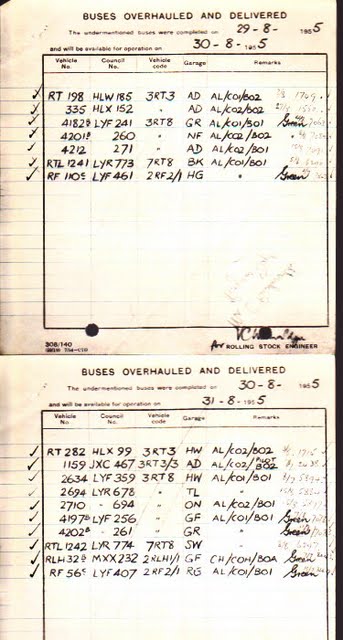 BUSES OVERHAULED AND DELIVERED
The undermentioned buses were completed on 29-8- 1955
and will be available for operation on 30-8-1955
Vehicle No. Council No. Vehicle code Garage Remarks
✓ RT 198 HLW 185 3RT3 AD AL/CO1/B02
✓ 335 HLX 152 " AD AL/CO2/B02
✓ 4182B LYF 241 3RT8 GR AL/CO1/B01 Green
✓ 4201B 260 " NF AL/CO2/B02
✓ 4212 271 " AD AL/CO2/B01
✓ RTL 1241 LYR 773 7RT8 BK AL/CO1/B01
✓ RF 110C LYF 461 2RF2/1 HG " Green
308/140
for ROLLING STOCK ENGINEER
BUSES OVERHAULED AND DELIVERED
The undermentioned buses were completed on 30-8- 1955
and will be available for operation on 31-8-1955
Vehicle No. Council No. Vehicle code Garage Remarks
✓ RT 282 HLX 99 3RT3 HW AL/CO2/B02
✓ 1159 JXC 467 3RT3/3 AD AL/CO2/PILOT B02
✓ 2634 LYF 359 3RT8 HW AL/CO1/B01
2694 LYR 678 " TL "
✓ 2710 - 694 " ON AL/CO2/B01
✓ 4197B LYF 256 " GF AL/CO1/B01 Green
✓ 4202B - 261 " GR " Green
✓ RTL 1242 LYR 774 7RT8 SW "
✓ RLH 32B MXX 232 2RLH1/1 GF CH/COH/BOA Green
✓ RF 56C LYF 407 2RF2/1 RG AL/CO1/B01 Green